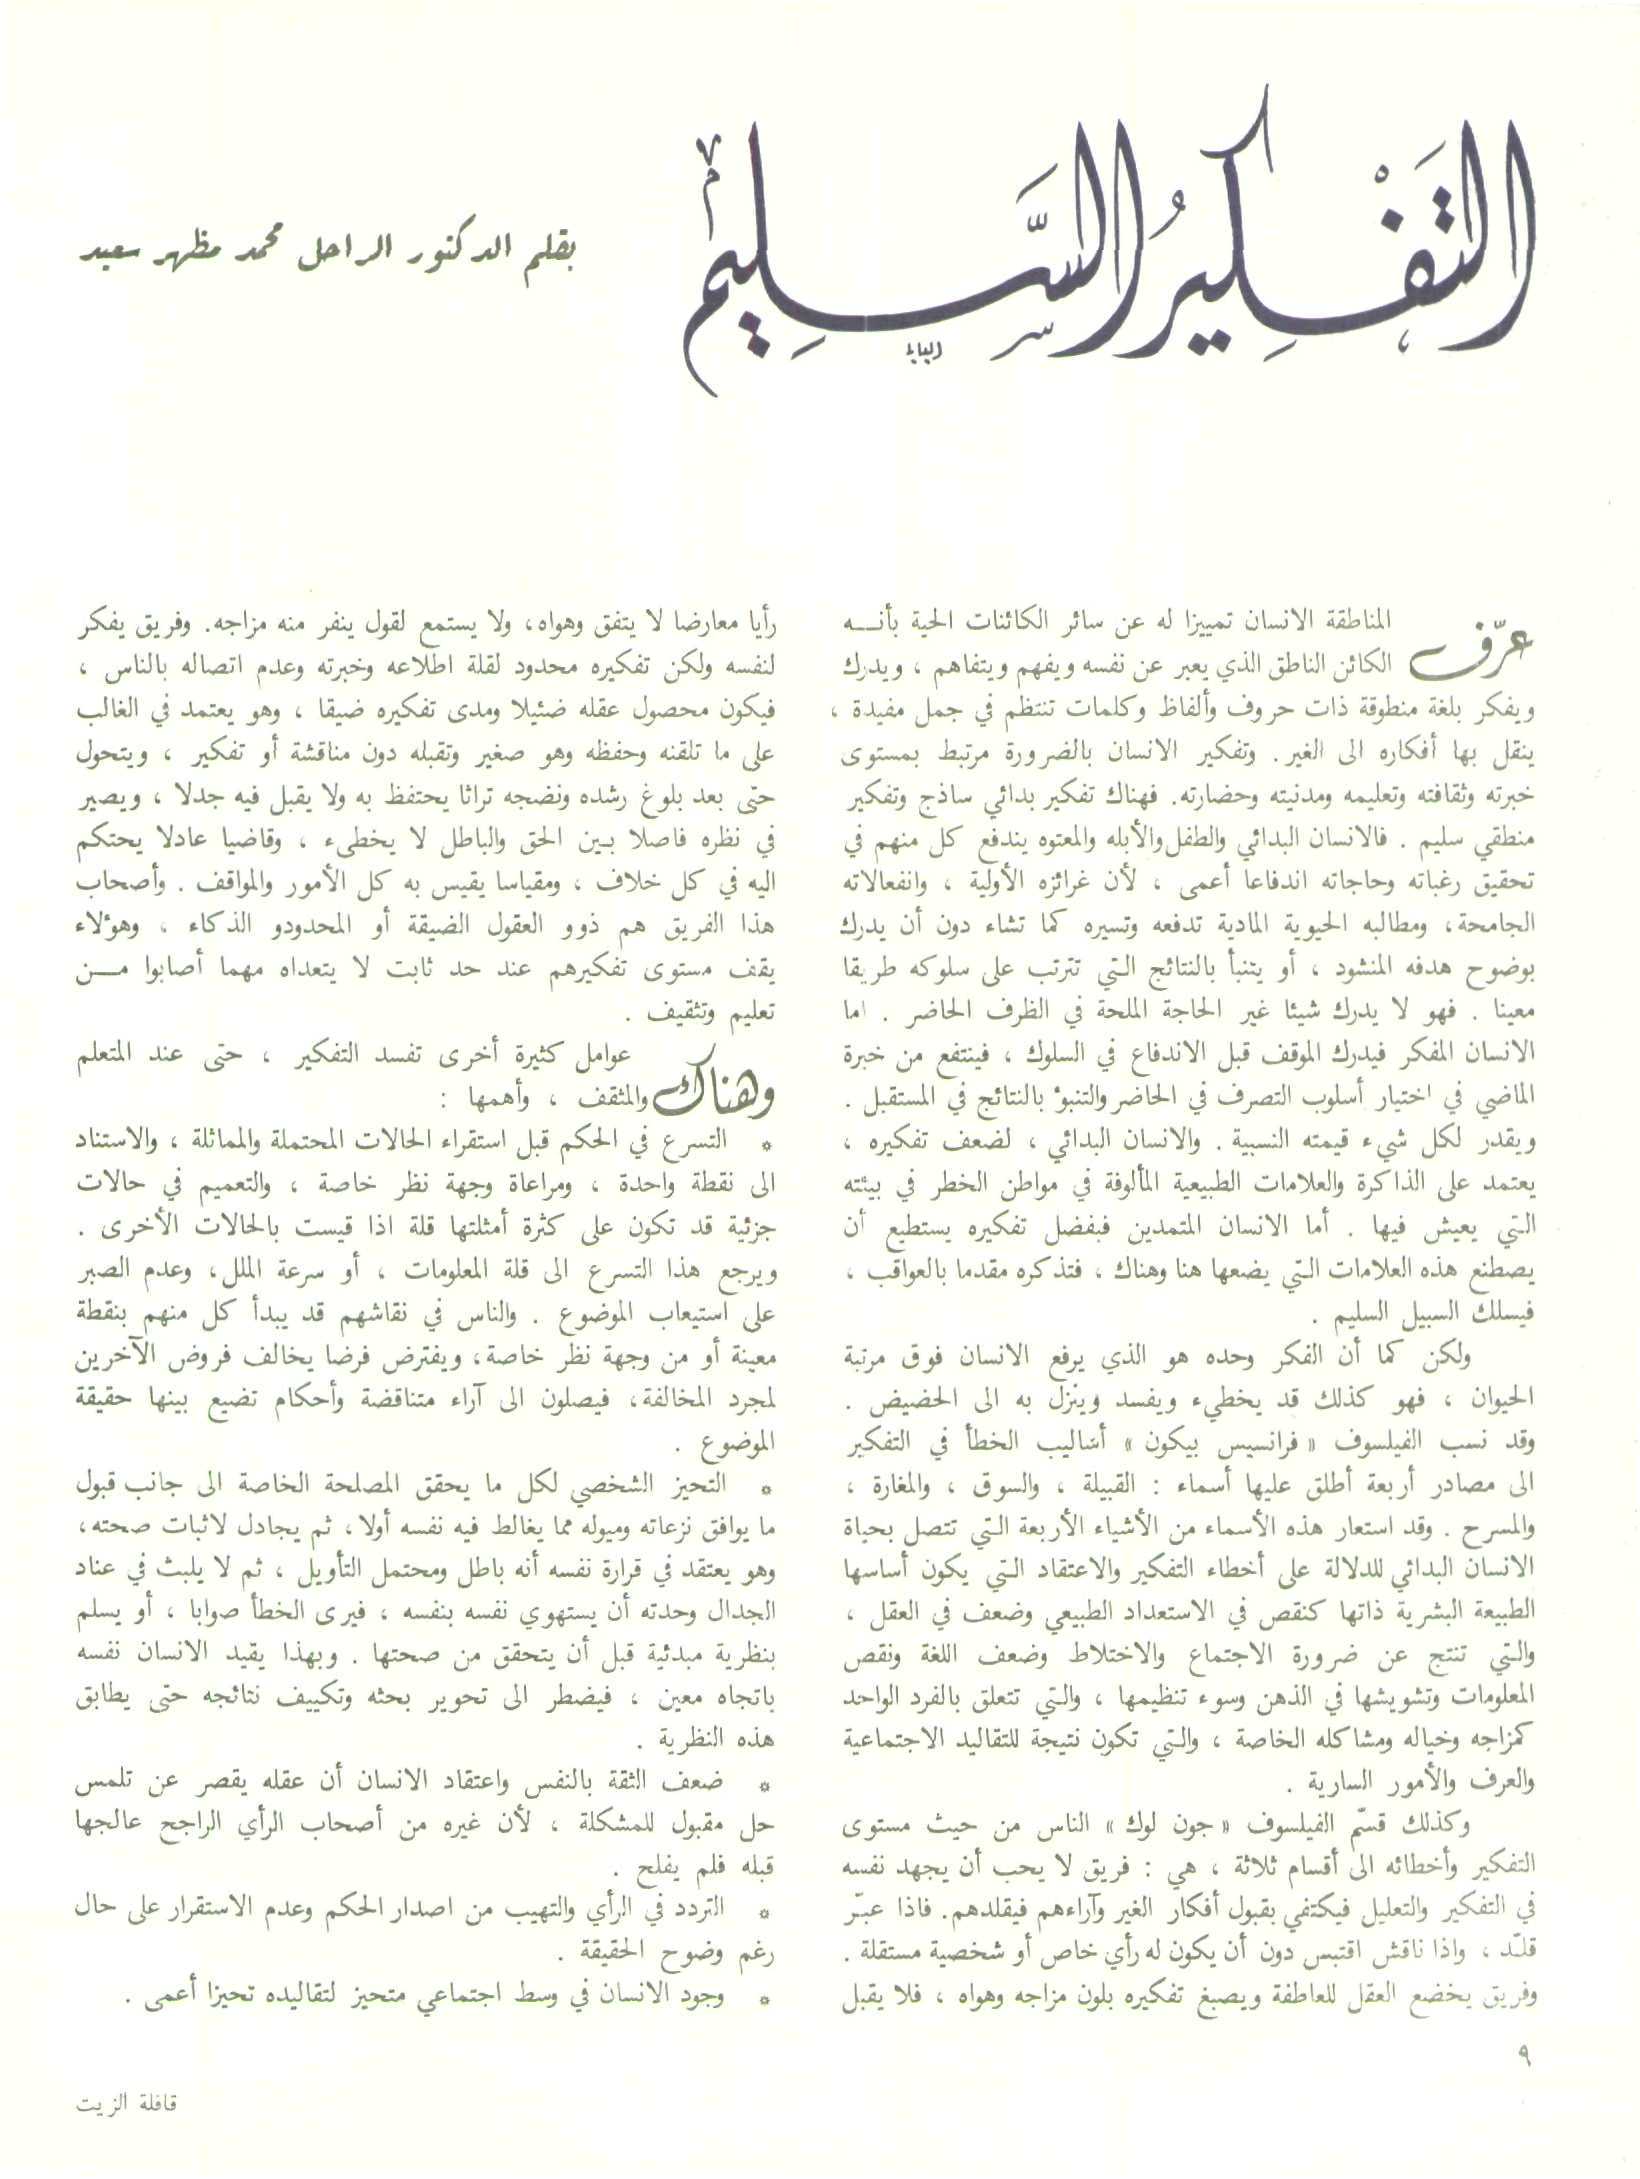 التَفْكيرُ السَّليم
البابا
بقلم الدكتور الراحل محمد مظهر سعيد
عرّف المناطقة الانسان تمييزا له عن سائر الكائنات الحية بأنه
الكائن الناطق الذي يعبر عن نفسه ويفهم ويتفاهم ، ويدرك
ويفكر بلغة منطوقة ذات حروف وألفاظ وكلمات تنتظم في جمل مفيدة ،
ينقل بها أفكاره الى الغير . وتفكير الانسان بالضرورة مرتبط بمستوى
خبرته وثقافته وتعليمه ومدنيته وحضارته. فهناك تفكير بدائي ساذج وتفكير
منطقي سليم . فالانسان البدائي والطفل والأبله والمعتوه يندفع كل منهم في
تحقيق رغباته وحاجاته اندفاعا أعمى ، لأن غرائزه الأولية ، وانفعالاته
الجامحة، ومطالبه الحيوية المادية تدفعه وتسيره كما تشاء دون أن يدرك
بوضوح هدفه المنشود ، أو يتنبأ بالنتائج التي تترتب على سلوكه طريقا
معينا . فهو لا يدرك شيئا غير الحاجة الملحة في الظرف الحاضر . اما
الانسان المفكر فيدرك الموقف قبل الاندفاع في السلوك ، فينتفع من خبرة
الماضي في اختيار أسلوب التصرف في الحاضر والتنبؤ بالنتائج في المستقبل .
ويقدر لكل شيء قيمته النسبية . والانسان البدائي ، لضعف تفكيره ،
يعتمد على الذاكرة والعلامات الطبيعية المألوفة في مواطن الخطر في بيئته
التي يعيش فيها . أما الانسان المتمدين فبفضل تفكيره يستطيع أن
يصطنع هذه العلامات التي يضعها هنا وهناك ، فتذكره مقدما بالعواقب ،
فيسلك السبيل السليم .
ولكن كما أن الفكر وحده هو الذي يرفع الانسان فوق مرتبة
الحيوان ، فهو كذلك قد يخطيء ويفسد وينزل به الى الحضيض .
وقد نسب الفيلسوف « فرانسيس بيكون » أساليب الخطأ في التفكير
الى مصادر أربعة أطلق عليها أسماء : القبيلة ، والسوق ، والمغارة ،
والمسرح . وقد استعار هذه الأسماء من الأشياء الأربعة التي تتصل بحياة
الانسان البدائي للدلالة على أخطاء التفكير والاعتقاد التي يكون أساسها
الطبيعة البشرية ذاتها كنقص في الاستعداد الطبيعي وضعف في العقل ،
والتي تنتج عن ضرورة الاجتماع والاختلاط وضعف اللغة ونقص
المعلومات وتشويشها في الذهن وسوء تنظيمها ، والتي تتعلق بالفرد الواحد
كمزاجه وخياله ومشاكله الخاصة ، والتي تكون نتيجة للتقاليد الاجتماعية
والعرف والأمور السارية .
وكذلك قسّم الفيلسوف « جون لوك » الناس من حيث مستوى
التفكير وأخطائه الى أقسام ثلاثة ، هي : فريق لا يحب أن يجهد نفسه
في التفكير والتعليل فيكتفي بقبول أفكار الغير وآراءهم فيقلدهم. فاذا عبّر
قلّد ، واذا ناقش اقتبس دون أن يكون له رأي خاص أو شخصية مستقلة .
وفريق يخضع العقل للعاطفة ويصبغ تفكيره بلون مزاجه وهواه ، فلا يقبل
رأيا معارضا لا يتفق وهواه، ولا يستمع لقول ينفر منه مزاجه. وفريق يفكر
لنفسه ولكن تفكيره محدود لقلة اطلاعه وخبرته وعدم اتصاله بالناس ،
فيكون محصول عقله ضئيلا ومدى تفكيره ضيقا ، وهو يعتمد في الغالب
على ما تلقنه وحفظه وهو صغير وتقبله دون مناقشة أو تفكير ، ويتحول
حتى بعد بلوغ رشده ونضجه تراثا يحتفظ به ولا يقبل فيه جدلا ، ويصير
في نظره فاصلا بين الحق والباطل لا يخطىء ، وقاضيا عادلا يحتكم
اليه في كل خلاف ، ومقياسا يقيس به كل الأمور والمواقف . وأصحاب
هذا الفريق هم ذوو العقول الضيقة أو المحدودو الذكاء ، وهؤلاء
يقف مستوى تفكيرهم عند حد ثابت لا يتعداه مهما أصابوا من
تعليم وتثقيف .
وهناك عوامل كثيرة أخرى تفسد التفكير ، حتى عند المتعلم
والمثقف ، وأهمها :
* التسرع في الحكم قبل استقراء الحالات المحتملة والمماثلة ، والاستناد
الى نقطة واحدة ، ومراعاة وجهة نظر خاصة ، والتعميم في حالات
جزئية قد تكون على كثرة أمثلتها قلة اذا قيست بالحالات الأخرى .
ويرجع هذا التسرع الى قلة المعلومات ، أو سرعة الملل، وعدم الصبر
على استيعاب الموضوع . والناس في نقاشهم قد يبدأ كل منهم بنقطة
معينة أو من وجهة نظر خاصة، ويفترض فرضا يخالف فروض الآخرين
لمجرد المخالفة، فيصلون الى آراء متناقضة وأحكام تضيع بينها حقيقة
الموضوع .
* التحيز الشخصي لكل ما يحقق المصلحة الخاصة الى جانب قبول
ما يوافق نزعاته وميوله مما يغالط فيه نفسه أولا، ثم يجادل لاثبات صحته،
وهو يعتقد في قرارة نفسه أنه باطل ومحتمل التأويل ، ثم لا يلبث في عناد
الجدال وحدته أن يستهوي نفسه بنفسه ، فيرى الخطأ صوابا ، أو يسلم
بنظرية مبدئية قبل أن يتحقق من صحتها . وبهذا يقيد الانسان نفسه
باتجاه معين ، فيضطر الى تحوير بحثه وتكييف نتائجه حتى يطابق
هذه النظرية .
* ضعف الثقة بالنفس واعتقاد الانسان أن عقله يقصر عن تلمس
حل مقبول للمشكلة ، لأن غيره من أصحاب الرأي الراجح عالجها
قبله فلم يفلح .
* التردد في الرأي والتهيب من اصدار الحكم وعدم الاستقرار على حال
رغم وضوح الحقيقة .
* وجود الانسان في وسط اجتماعي متحيز لتقاليده تحيزا أعمى .
٩
قافلة الزيت